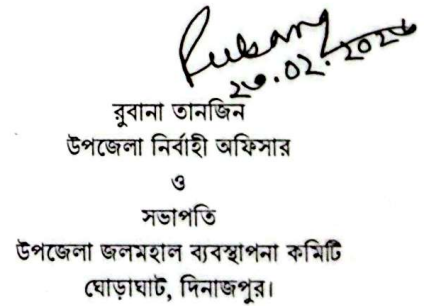 Rubana
২৩.০২.২০২৬
রুবানা তানজিন
উপজেলা নির্বাহী অফিসার
ও
সভাপতি
উপজেলা জলমহাল ব্যবস্থাপনা কমিটি
ঘোড়াঘাট, দিনাজপুর।